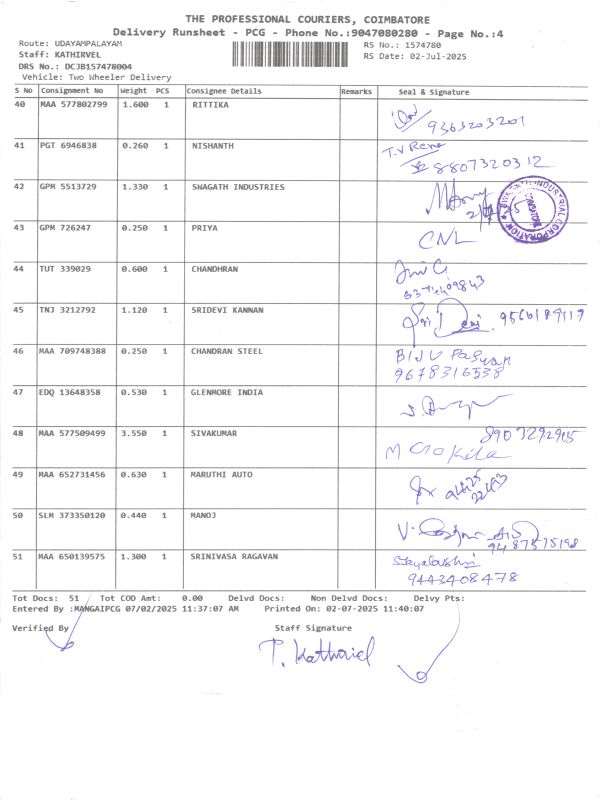 THE PROFESSIONAL COURIERS, COIMBATORE
Delivery Runsheet - PCG - Phone No.:9047080280 - Page No.:4
Route: UDAYAMPALAYAM
Staff: KATHIRVEL
DRS No.: DCJB157478004
Vehicle: Two Wheeler Delivery
RS No.: 1574780
RS Date: 02-Jul-2025
S No Consignment No Weight PCS Consignee Details Remarks Seal & Signature
40 MAA 577802799 1.600 1 RITTIKA
9363203201
41 PGT 6946838 0.260 1 NISHANTH T.V Rena
8807320312
42 GPM 5513729 1.330 1 SWAGATH INDUSTRIES
43 GPM 726247 0.250 1 PRIYA CNL
44 TUT 339029 0.600 1 CHANDHRAN
45 TNJ 3212792 1.120 1 SRIDEVI KANNAN Sri Devi
46 MAA 709748388 0.250 1 CHANDRAN STEEL BIJU Paswan
9678316538
47 EDQ 13648358 0.530 1 GLENMORE INDIA
48 MAA 577509499 3.550 1 SIVAKUMAR
M Gokila
49 MAA 652731456 0.630 1 MARUTHI AUTO
50 SLM 373350120 0.440 1 MANOJ
51 MAA 650139575 1.300 1 SRINIVASA RAGAVAN
9443408478
Tot Docs: 51 Tot COD Amt: 0.00 Delvd Docs: Non Delvd Docs: Delvy Pts:
Entered By :MANGAIPCG 07/02/2025 11:37:07 AM Printed On: 02-07-2025 11:40:07
Verified By Staff Signature
T. Kathirvel